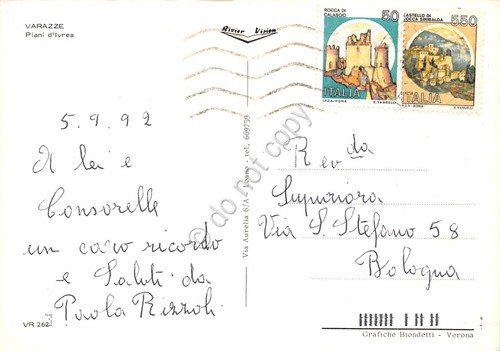 VARAZZE
Piani d'Ivrea
Rivier Vision
ROCCA DI CALASCIO
50
ITALIA
I.P.Z.S.-ROMA
E. VANGELLI
CASTELLO DI ROCCA SINIBALDA
550
ITALIA
I.P.Z.S.-ROMA
E. VANGELLI
5.9.92
A lei e
Consorelle
un caro ricordo
e Saluti da
Paola Rizzoli
VR 262
Via Aurelia 6/A - tel. 669759
do not copy
Rev da
Superiora
Via S. Stefano 58
Bologna
Grafiche Biondetti - Verona